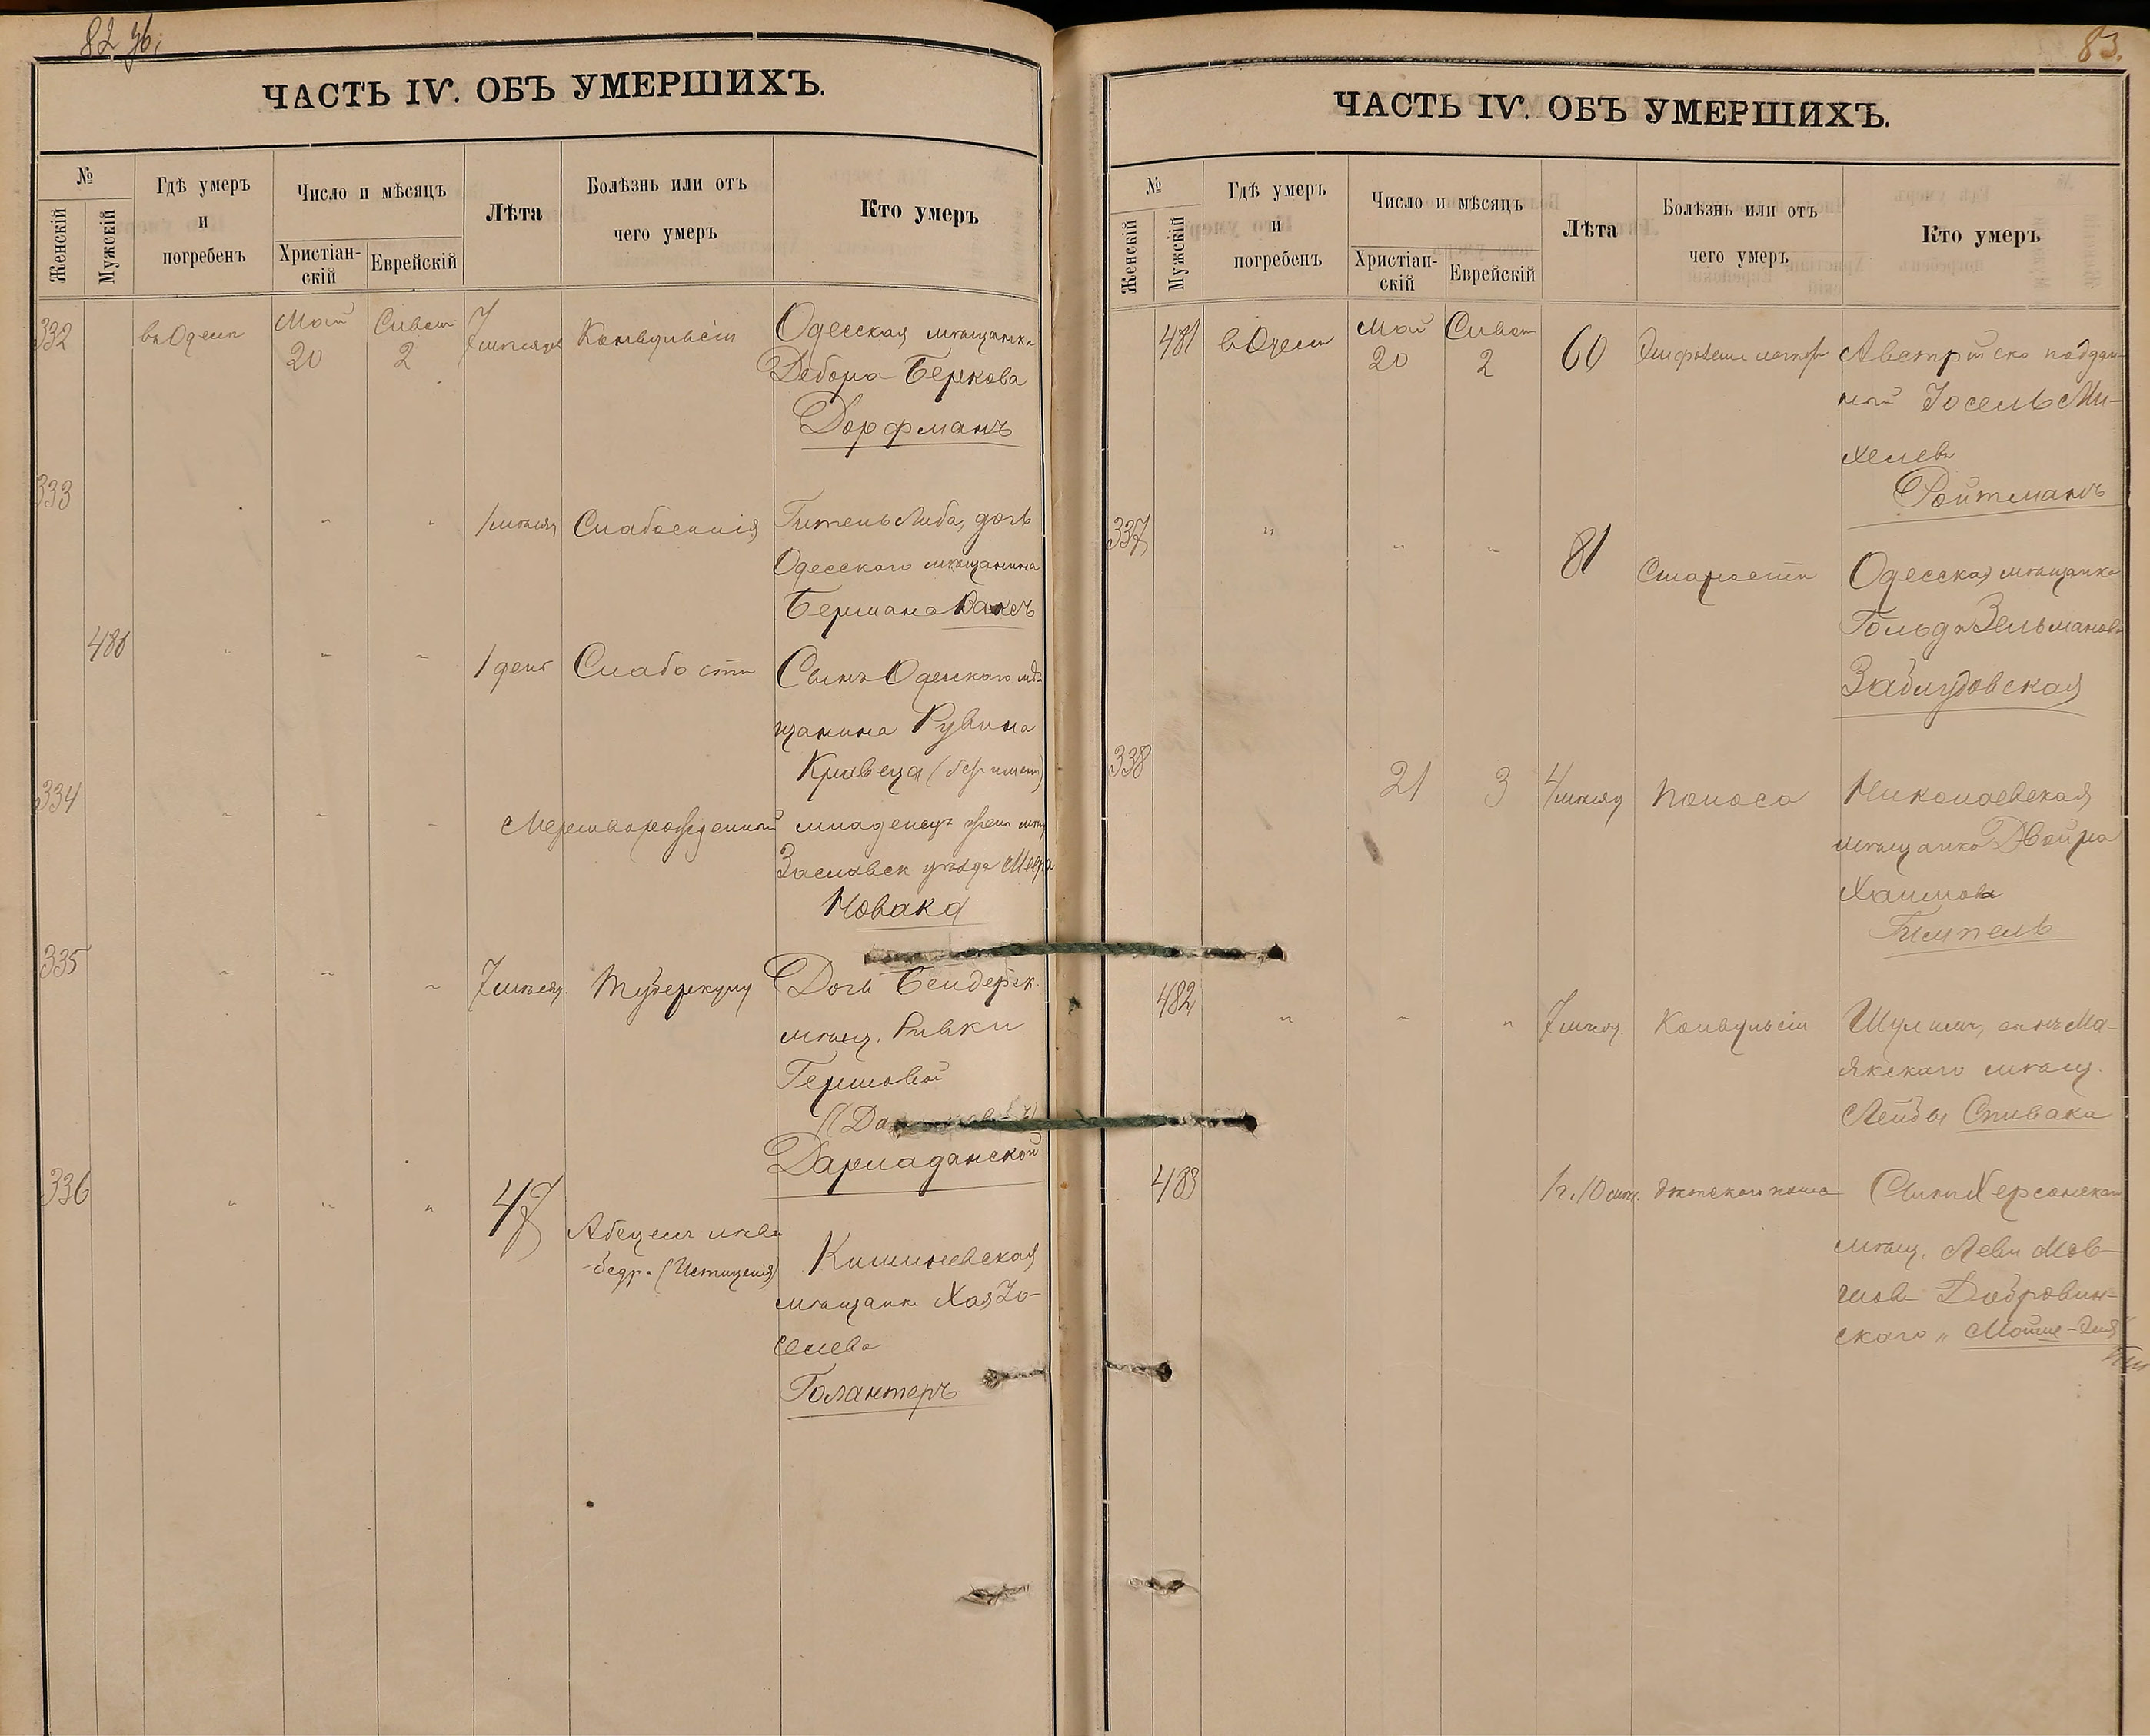 82 об.
ЧАСТЬ IV. ОБЪ УМЕРШИХЪ.
№
Женскій
Мужскій
Гдѣ умеръ
и
погребенъ
Число и мѣсяцъ
Христіан-
скій
Еврейскій
Лѣта
Болѣзнь или отъ
чего умеръ
Кто умеръ
332
въ Одессѣ
Май
20
Сиван
2
7
мѣсяцев
Конвульсіи
Одесская мѣщанка
Дебора Беркова
Дорфманъ
333
1 мѣсяц
Слабосилія
Гитель Либа, дочь
Одесского мѣщанина
Бермана
480
1 день
Слабости
Сынъ Одесскаго мѣ-
щанина Рувина
Кравеца
334
Мертворожденный младенец женск
Заславск уѣзда Меера
Новака
335
7 мѣсяц.
Туберкулу
Дочь Бендерск.
мѣщ. Ривки
Гершовой
Дармаданской
336
47
Абсцесс лѣва
бедр. (Истощенія)
Кишиневская
мѣщанка Хая Іо-
селева
Голантеръ
83.
ЧАСТЬ IV. ОБЪ УМЕРШИХЪ.
№
Женскій
Мужскій
Гдѣ умеръ
и
погребенъ
Число и мѣсяцъ
Христіан-
скій
Еврейскій
Лѣта
Болѣзнь или отъ
чего умеръ
Кто умеръ
481
в Одессѣ
Май
20
Сиван
2
60
Австрійско поддан-
ный Іосель Ми-
хелевъ
Ройтманъ
337
81
Старости
Одесская мѣщанка
Гольда Зельманова
Заблудовская
338
21
3
4 мѣсяц
Поноса
Николаевская
мѣщанка Двойра
Хаимова
Гимпель
482
7 мѣсяц.
Конвульсіи
Шулимъ, сынъ Ма-
якскаго мѣщ.
Лейбы Спивака
483
1 г. 10 мѣс.
Дѣтскаго поноса
Сынъ Херсонскаго
мѣщ. Леви Мов-
шова Добровин-
скаго „Мойше-